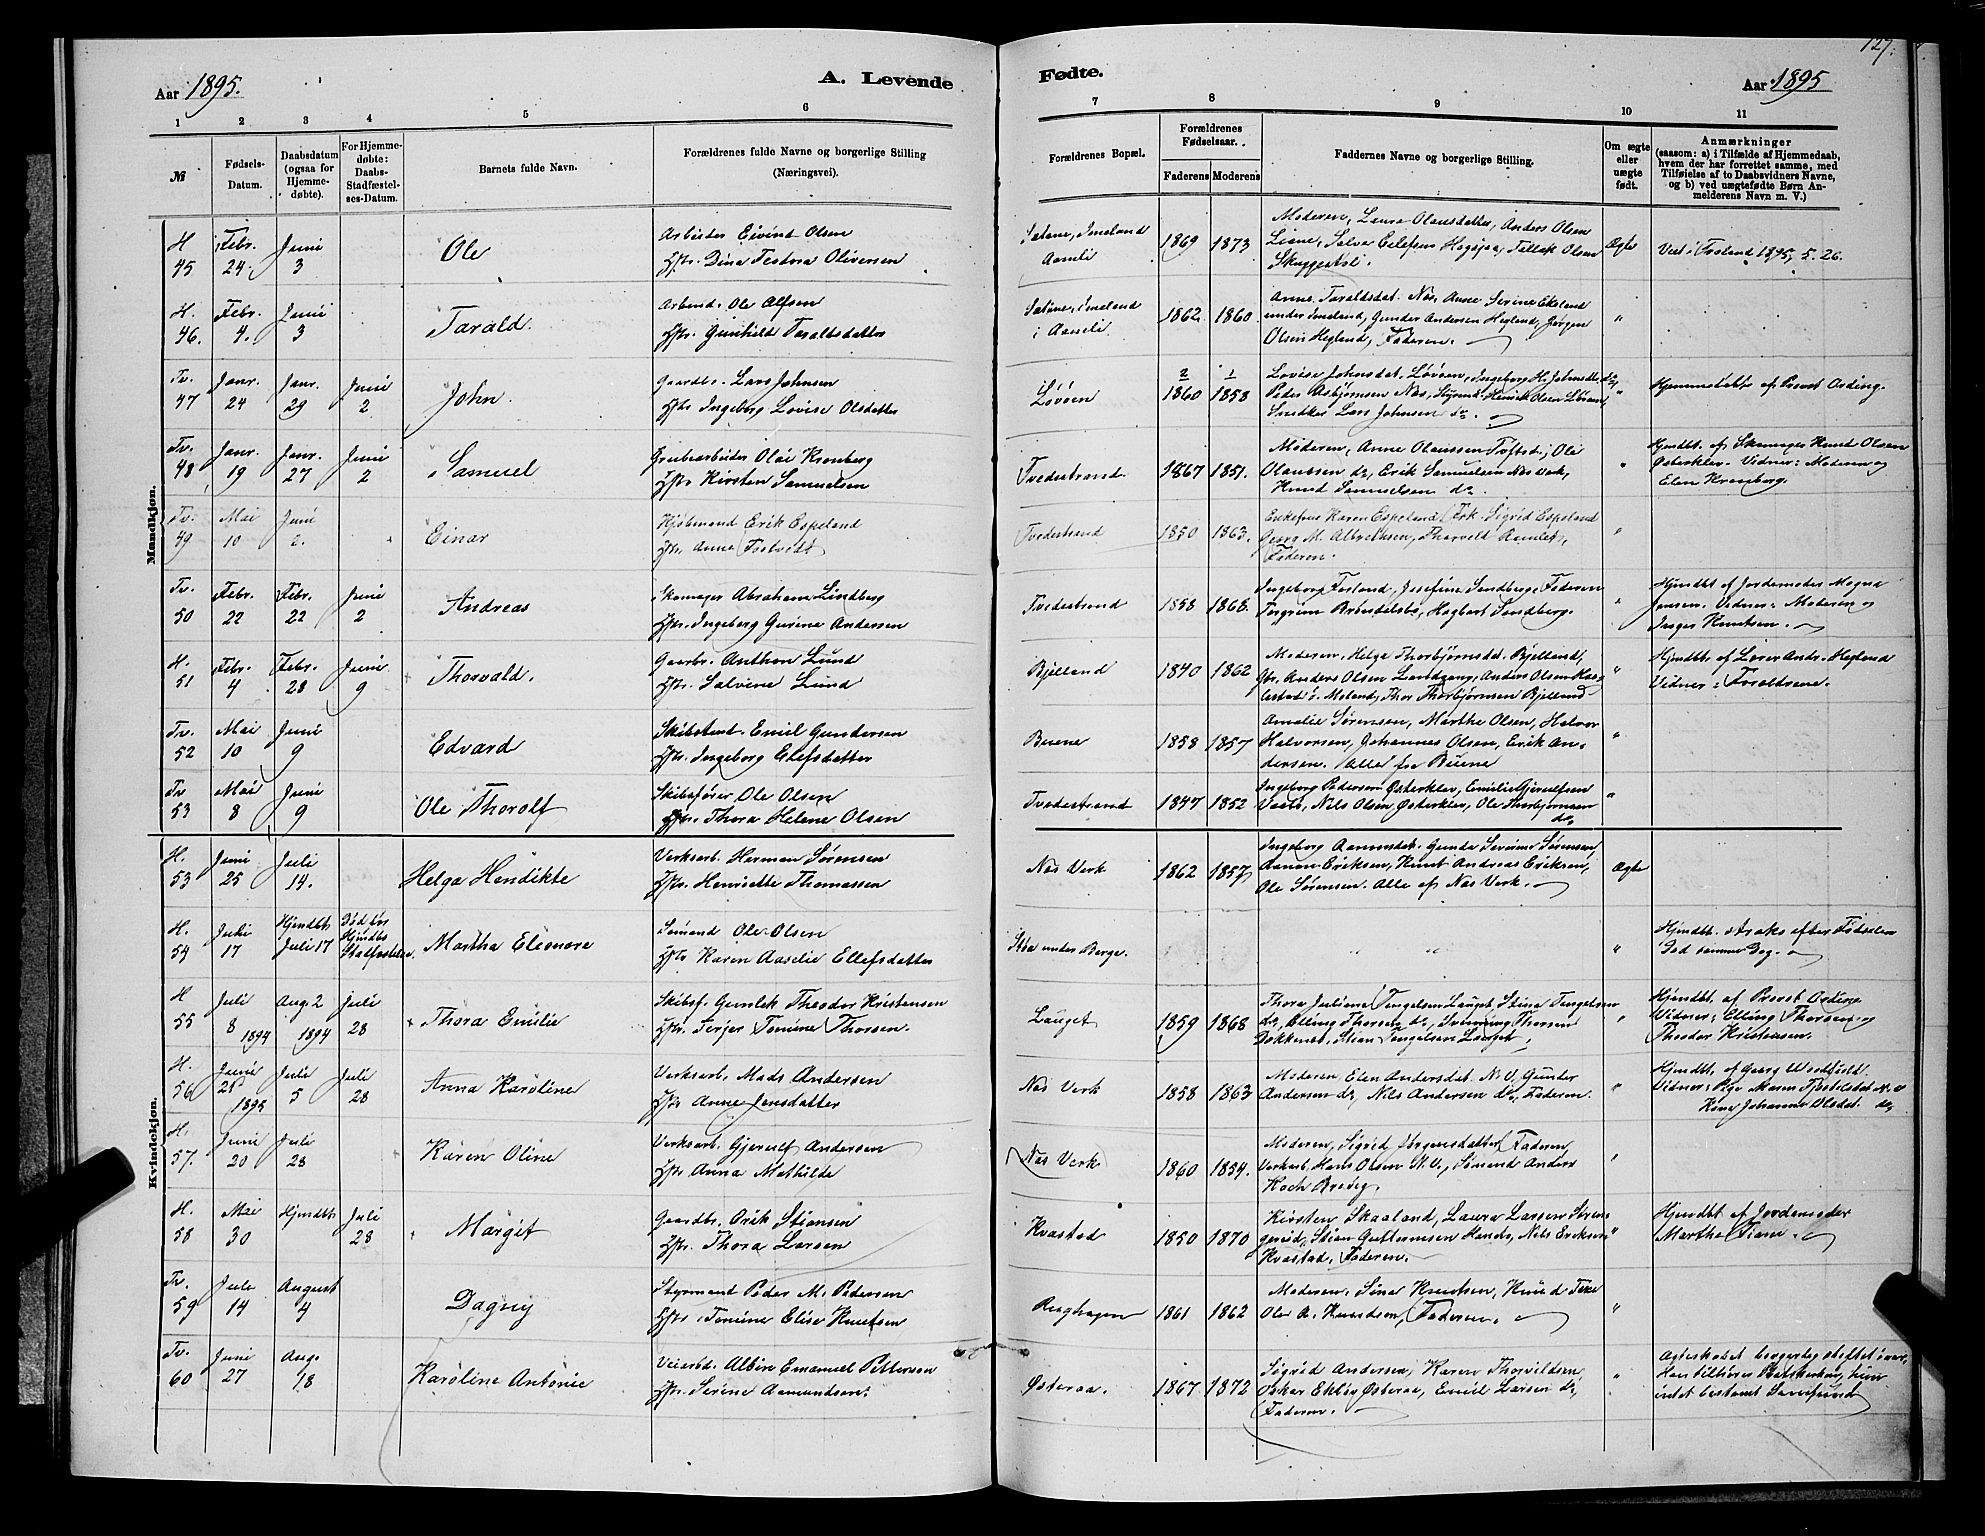 127.
Aar 1895.
A. Levende
Fødte.
Aar 1895
1 2 3 4 5 6
7 8 9 10 11
№
Fødsels-
Datum.
Daabsdatum
(ogsaa for
Hjemme-
døbte).
For Hjemme-
døbte:
Daabs-
Stadfæstel-
ses-Datum.
Barnets fulde Navn.
Forældrenes fulde Navne og borgerlige Stilling
(Næringsvei).
Forældrenes Bopæl.
Forældrenes
Fødselsaar.
Faderens Moderens
Faddernes Navne og borgerlige Stilling.
Om ægte
eller
uægte
født.
Anmærkninger
(saasom: a) i Tilfælde af Hjemmedaab,
hvem der har forrettet samme, med
Tilføielse af to Daabsvidners Navne,
og b) ved uægtefødte Børn An-
melderens Navn m. V.)
Mandkjøn.
H. 45 Febr. 24. Juni 3 Ole
Arbeider Eivind Olsen
Hstr. Dina Teodora Oliversen
Aamli 1869 1873
Moderen, Laura Olausdatter, Anders Olsen
Liane, Tellef Olsen
Ægte
1895, 5. 26.
H. 46. Febr. 4. Juni 3 Tarald.
Arbeid. Ole Alfsen
Hstr. Gunhild Taraldsdatter
i Aamli 1862 1860
Anne Taraldsdat. Næs, Anne Serine Ekeland
under Imeland, Gunder Andersen Hegland, Jørgen
Olsen Hegland, Faderen.
"
Tv. 47 Janr. 24 Janr. 29 Juni 2 John.
Gaardbr. Lars Johnsen
Hstr Ingeborg Lovise Olsdatter
Løvøen 2 1860 1 1858
Lovise Johnsdat. Løvøen,
Peder Asbjørnsen Næs,
Snedker Lars Johnsen do.
"
Hjemmedøbt af Provst Arding.
Tv. 48 Janr. 19 Janr. 27 Juni 2 Samuel
Grubearbeider Olai Kronberg
Hstr Kirsten Samuelsen
Tvedestrand 1867 1851.
Moderen, Anne Olaussen Ole
Olaussen do, Erik Samuelsen Næs Verk,
Knud Samuelsen do.
"
Hjmdbt. af Skomager Knud Olsen
Østerklev. Vidner: Moderen og
Elen Kronberg.
Tv. 49 Mai 10 Juni 2. Einar
Erik Espeland
Hstr. Anne
Tvedestrand 1850 1863.
Enkefrue Karen Espeland, Frk. Sigrid Espeland
Georg M. Albrektsen, Thorvald
Faderen.
"
Tv. 50 Febr. 22 Febr. 22 Juni 2 Andreas
Skomager Abraham Lindberg
Hstr. Ingeborg Gurine Andersen
Tvedestrand 1858 1868.
Ingeborg Fosland, Josefine Sandberg, Faderen
Hagbart Sandberg.
"
Hjmdbt af Jordemoder Magna
Jensen. Vidner: Moderen og
Inger Knutsen.
H. 51 Febr. 4 Febr. 28 Juni 9 Thorvald.
Gaarbr. Anthon Lund
Hstr. Salvine Lund
Bjelland 1840 1862
Moderen, Helga Thorbjørnsdat. Bjelland,
Gbr. Anders Olsen Landgang, Anders Olsen
Thor Thorbjørnsen Bjelland
"
Hjmdbt. af Lærer Andr. Hegland
Vidner: Forældrene.
Tv. 52 Mai 10 Juni 9 Edvard
Emil Gundersen
Hstr. Ingeborg Olefsdatter
Buene 1858 1857
Amalie Sørensen, Marthe Olsen, Halvor
Halvorsen, Johannes Olsen, Erik An-
dersen. Alle fra Buene
"
Tv 53 Mai 8 Juni 9 Ole Thorolf
Skibsfører Ole Olsen
Hstr. Thora Helene Olsen
Tvedestrand 1847 1852
Ingeborg Pedersen Østerklev, Emilie Gjerulfsen
Nils Olsen Østerklev, Ole Thorbjørnsen
do
"
Kvindekjøn.
H. 53 Juni 25 Juli 14. Helga Hendikte
Verksarb. Herman Sørensen
Hstr. Henriette Thomassen
Næs Verk 1862 1857
Ingeborg Aanonsdat. Gunda Severine Sørensen,
Aanon Eriksen, Knut Andreas Eriksen,
Ole Sørensen. Alle af Næs Verk.
Ægte
H. 54 Juli 17 Hjmdbt Juli 17 Død før Hjmdbs Stadfæstelsen. Martha Elionore
Sømand Ole Olsen
Hstr Karen Aaselie Ellefsdatter
under Berge.
" "
"
Hjmdbt. straks efter Fødselen
Død samme Dag.
H 55 Juli 8 1894 Aug. 2 1894 Juli 28 Thora Emilie
Skibsf. Gunlek Theodor Kristensen
Hstr. Terjer Tomine Thorsen.
Lauget 1859 1868
Thora Juliane Tengelsen Lauget, Stina Tengelsen
do, Elling Thorsen do, Svenning Thorsen
Stian Tengelsen Lauget.
"
Hjmdbt. af Provst Arding
Vidner: Elling Thorsen og
Theodor Kristensen.
H. 56 Juni 28 1895 Juli 5 Juli 28 Anna Karoline
Verksarb. Mads Andersen
Hstr Anne Jensdatter
Næs Verk 1858 1863
Moderen, Elen Andersdat. N.V. Gunter
Andersen do, Nils Andersen do, Faderen.
"
Hjmdbt. af Georg
Vidner: Pige Maren
Kone Johanne Olsdat. do
H. 57. Juni 20 Juli 28 Karen Oline
Verksarb. Gjerulf Andersen
Hstr Anna Mathilde
Næs Verk 1860 1854.
Moderen, Sigrid Jørgensdatter, Faderen,
Verksarb. Hans Olsen N.V., Sømand Anders
Koch
"
H. 58 Mai 30 Hjmdbt Juli 28 Margit
Gaardbr. Erik Stiansen
Hstr. Thora Larsen
Kvastad 1850 1870
Kirsten Skaaland, Laura Larsen
Stian Guttormsen Nils Eriksen
Kvastad, Faderen.
"
Hjmdbt af Jordemoder
Marthe Tiane.
Tv. 59 Juli 14 August 4 Dagny
Styrmand Peder M. Pedersen
Hstr. Tomine Elise Knutsen
1861 1862
Moderen, Sina Knutsen, Knud
Ole A. Knudsen, Faderen.
"
Tv. 60 Juni 27 Aug. 18 Karoline Antonie
Veiarbd. Albin Emanuel Pettersen
Hstr. Serine Aamundsen
Østeraa. 1867 1872
Sigrid Andersen, Karen Thorvildsen,
Oskar Ekby Østeraa, Emil Larsen do,
Faderen.
"
Ægteskabet borgerlig stiftet
Han tilhører
intet bestemt Samfund